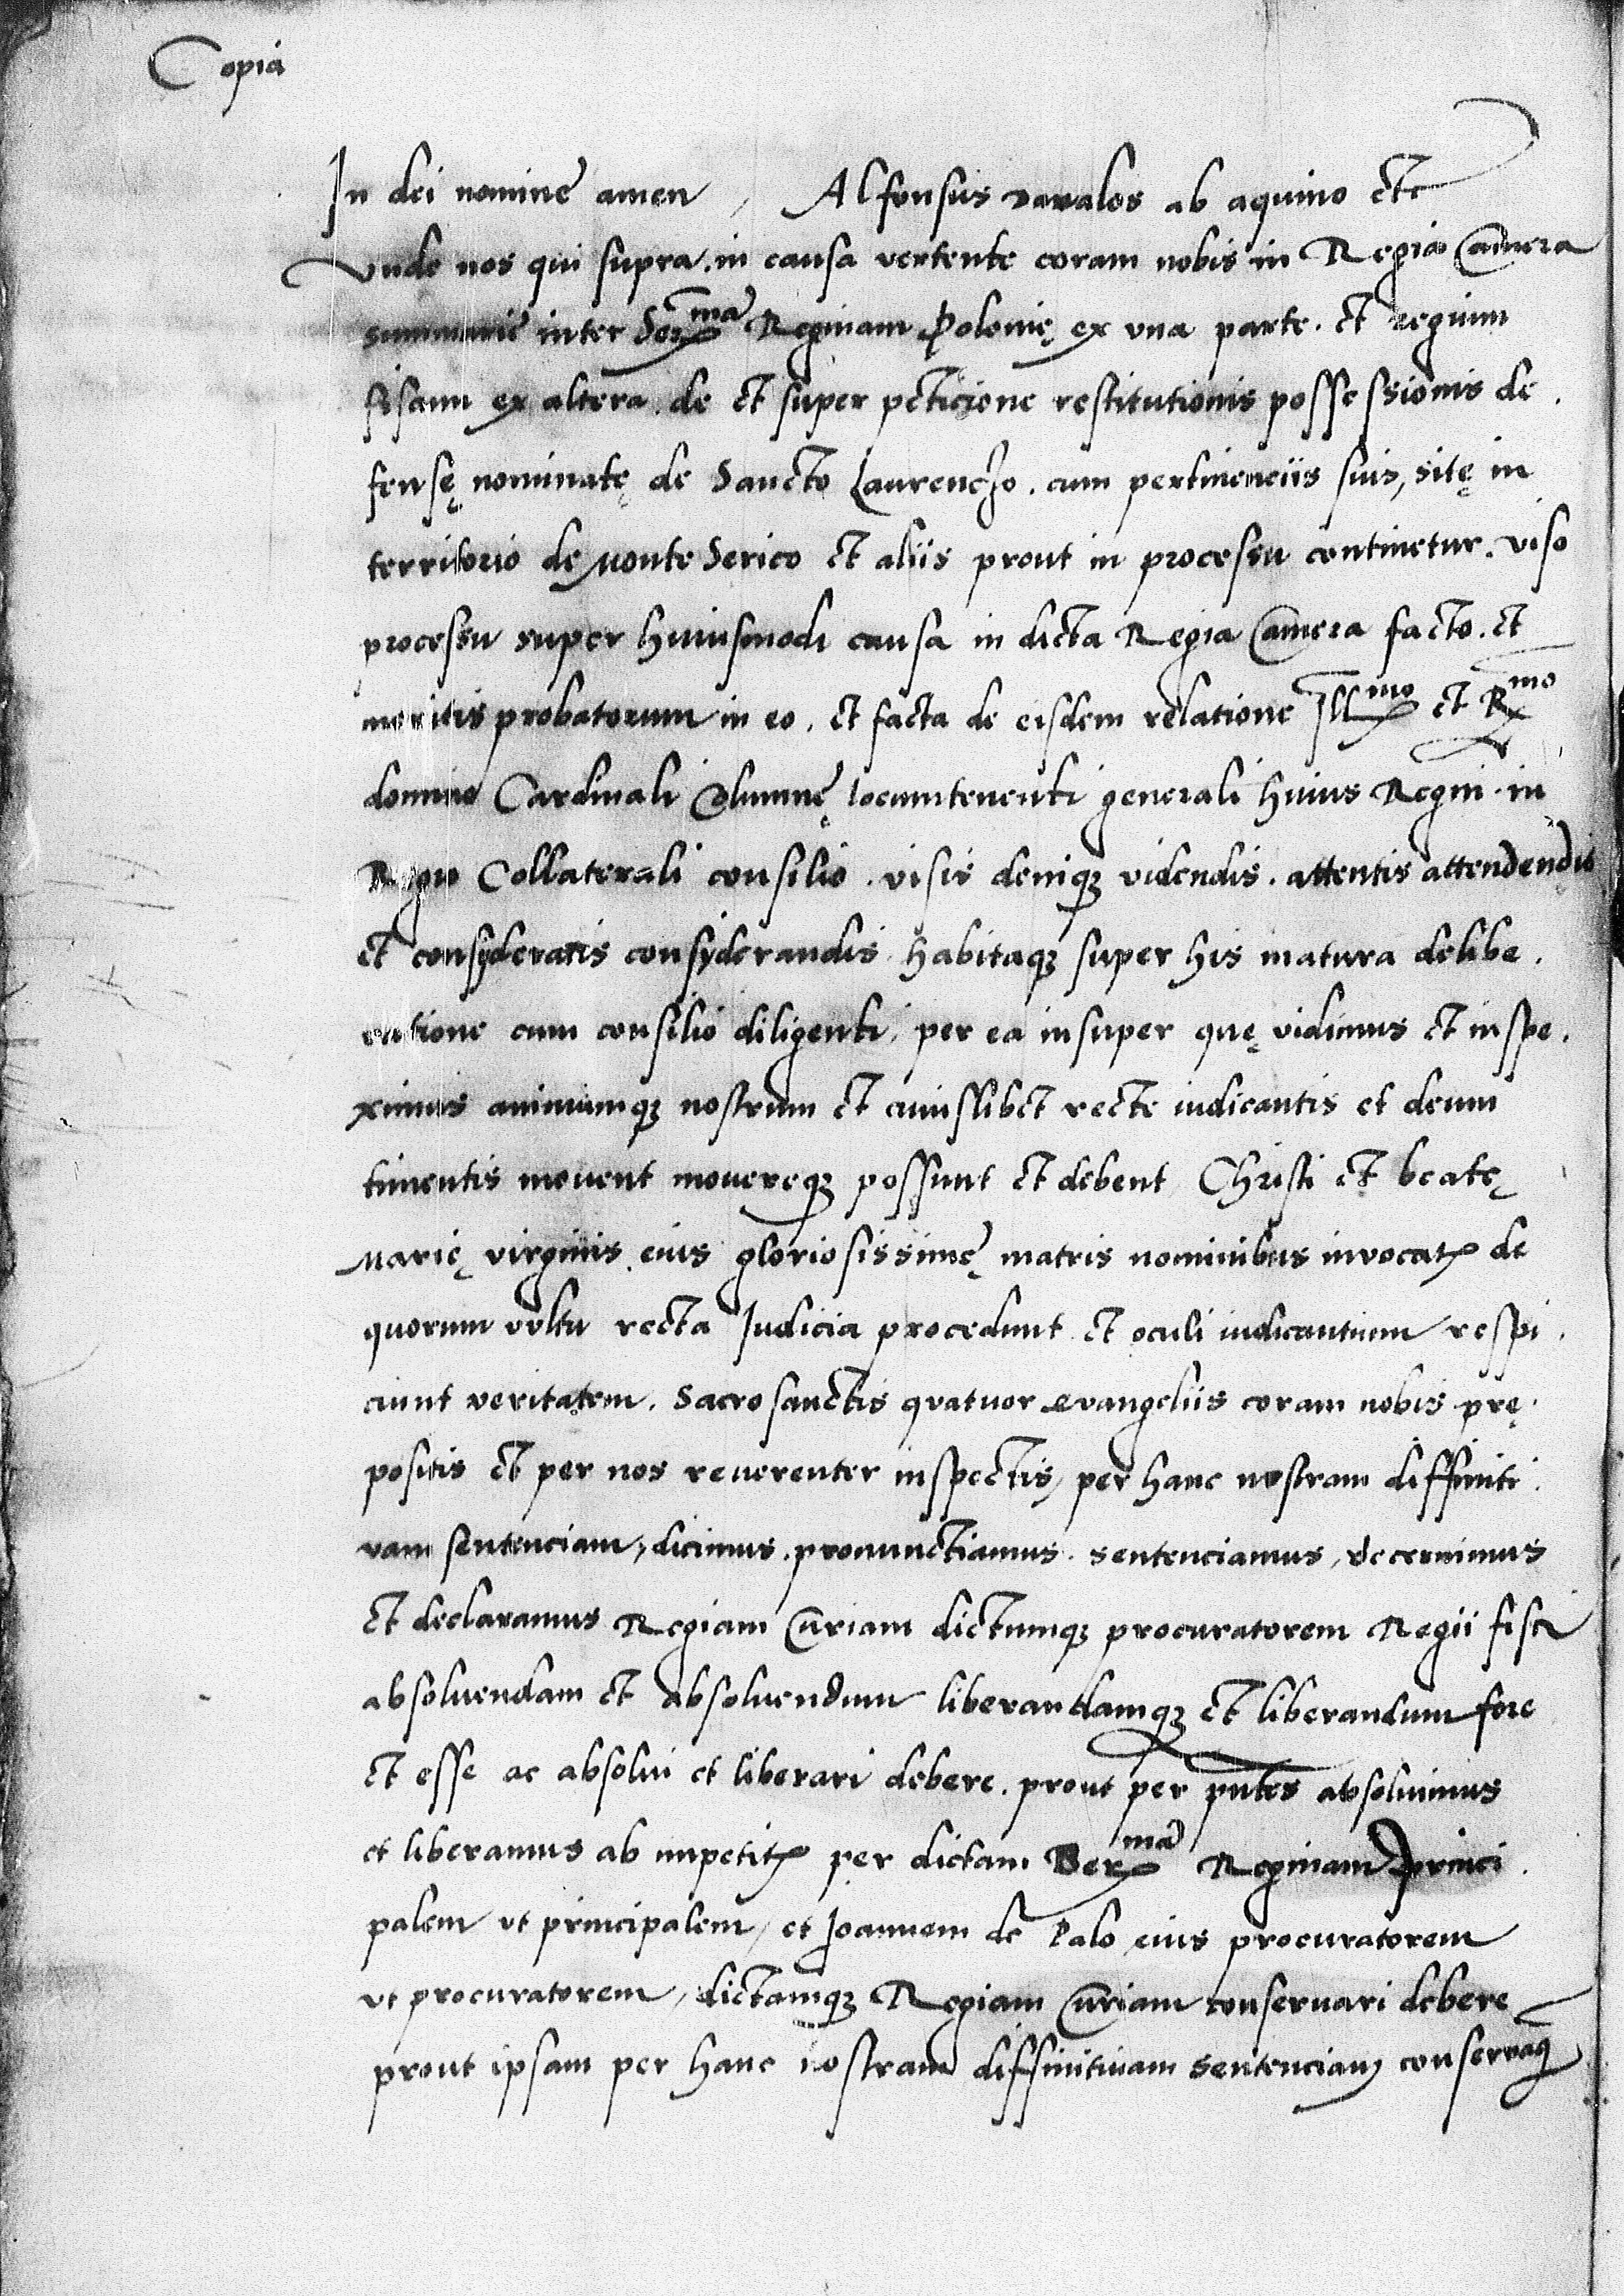 Copia
In dei nomine amen, Alfonsus davalos ab aquino etc
Vnde nos qui supra. in causa vertente coram nobis in Regia Camera
summarie inter Ser^ma Reginam Polonię ex vna parte. et regium
fiscum ex altera. de et super peticione restitutionis possessionis de.
fensę nominatę de Sancto Laurenczo. cum pertinenciis suis, sitę in
territorio de Monte Serico et aliis prout in processu continetur. viso
processu super huiusmodi causa in dicta Regia Camera facto. et
meritis probatorum in eo. et facta de eisdem relatione Ill^mo et R^mo
domino Cardinali Columnę locumtenenti generali huius Regni. in
Regio Collaterali consilio. visis denique videndis. attentis attendendis
et consyderatis consyderandis habitaque super his matura delibe.
ratione cum consilio diligenti, per ea insuper quę vidimus et inspe.
ximus animumque nostrum et cuiuslibet recte iudicantis et deum
timentis movent movereque possunt et debent Christi et beatę
Marię virginis eius gloriosissimę matris nominibus invocatis de
quorum vultu recta Iudicia procedunt et oculi iudicantium respi.
ciunt veritatem. Sacrosanctis quatuor evangeliis coram nobis prę.
positis et per nos reverenter inspectis, per hanc nostram diffiniti.
vam sentenciam, dicimus. pronunctiamus. sentenciamus, decernimus
et declaramus Regiam Curiam dictumque procuratorem Regii fisci
absoluendam et absoluendum liberandamque et liberandum fore
et esse ac absolui et liberari debere. prout per pntes absoluimus
et liberamus ab impetitis per dictam Ser^ma Reginam princi.
palem vt principalem, et Joannem de Palo eius procuratorem
vt procuratorem, dictamque Regiam Curiam conseruari debere
prout ipsam per hanc nostram diffinitivam sentenciam conservaq